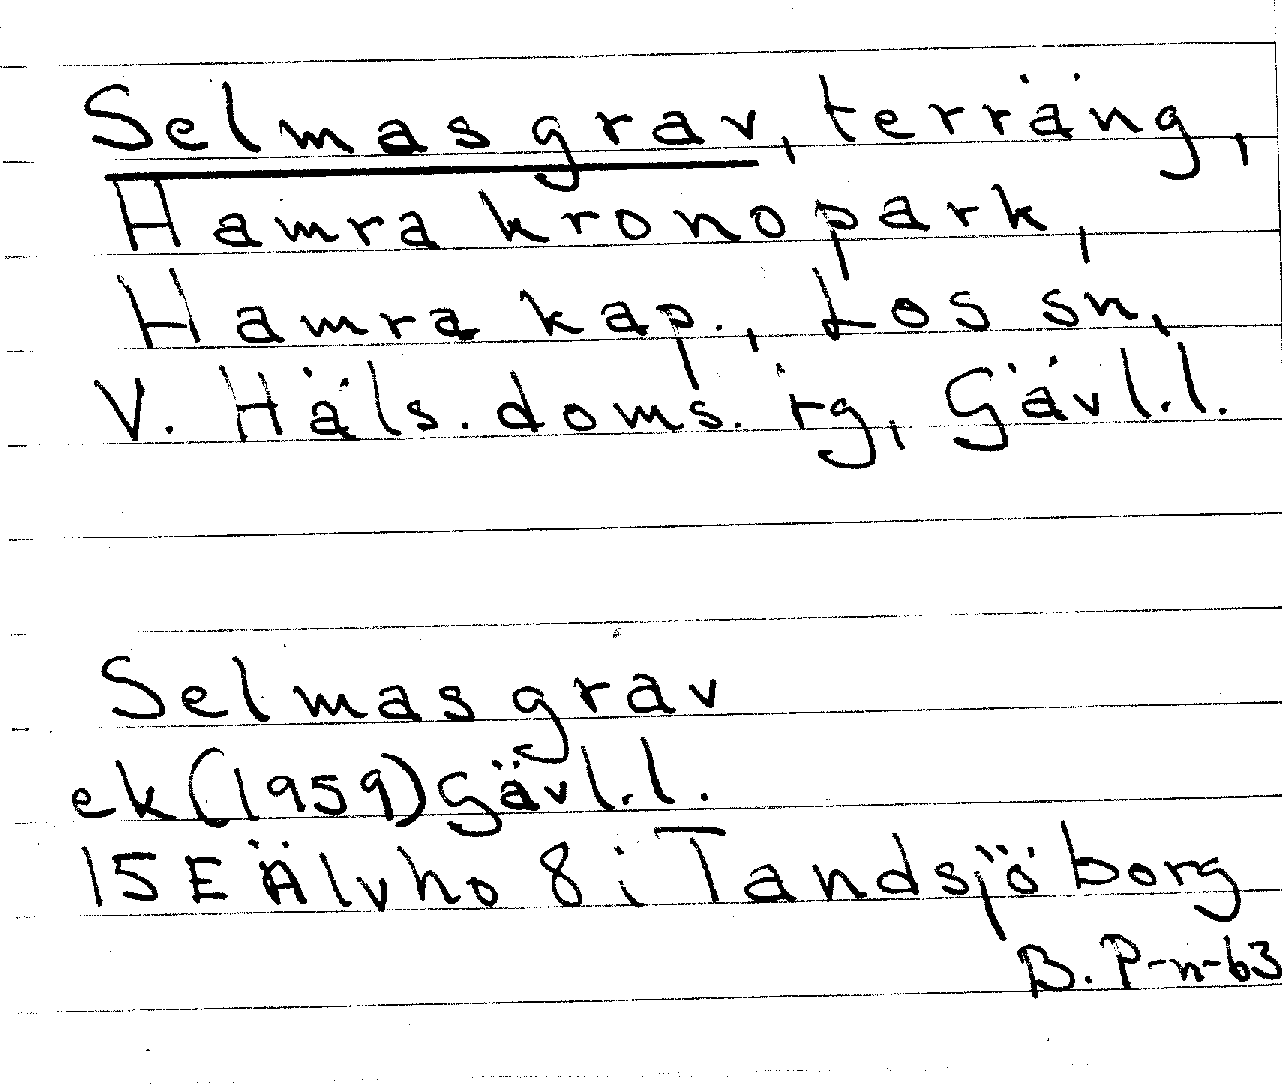 Selmas grav, terräng,
Hamra kronopark,
Hamra kap., Los sn,
V. Häls. doms. rg, Gävl.l.
Selmas grav
ek (1959) Gävl.l.
15E Älvho 8 i Tandsjöborg
B. P-n-63